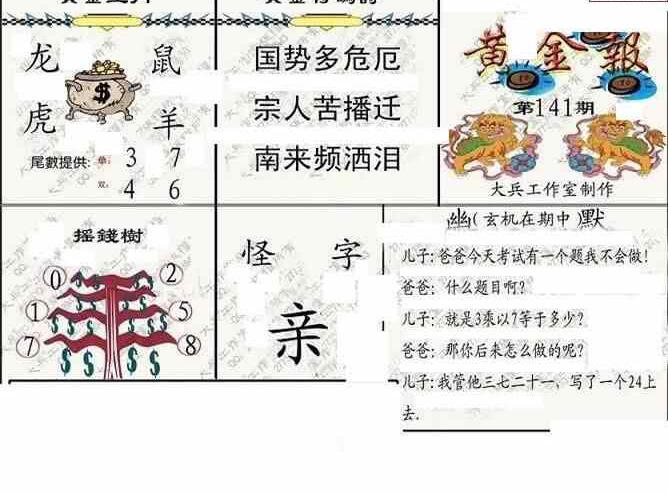 龙 鼠
$
虎 羊
尾數提供: 单: 3 7
双: 4 6
国势多危厄
宗人苦播迁
南来频洒泪
黄金報
第141期
大兵工作室制作
摇錢樹
0 2
1 5
7 8
怪 字
亲
幽(玄机在期中)默
儿子:爸爸今天考试有一个题我不会做!
爸爸: 什么题目啊?
儿子: 就是3乘以7等于多少?
爸爸: 那你后来怎么做的呢?
儿子:我管他三七二十一、写了一个24上
去.